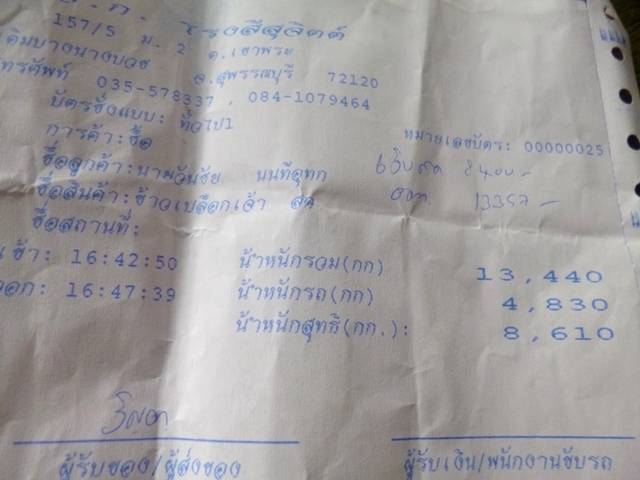 โรงสีสุจิตต์
157/5 ม. 2 ต.เขาพระ
เดิมบางนางบวช จ.สุพรรณบุรี 72120
โทรศัพท์ 035-578337 , 084-1079464
บัตรชั่งแบบ: ทั่วไป1
การค้า:ซื้อ หมายเลขบัตร: 00000025
ชื่อลูกค้า:นายวันชัย นนทีอุทก 8400-
ชื่อสินค้า:ข้าวเปลือกเจ้า สด 13357-
ชื่อสถานที่:
เข้า: 16:42:50 น้ำหนักรวม(กก) 13,440
ออก: 16:47:39 น้ำหนักรถ(กก) 4,830
น้ำหนักสุทธิ(กก.): 8,610
ผู้รับของ/ผู้ส่งของ ผู้รับเงิน/พนักงานขับรถ